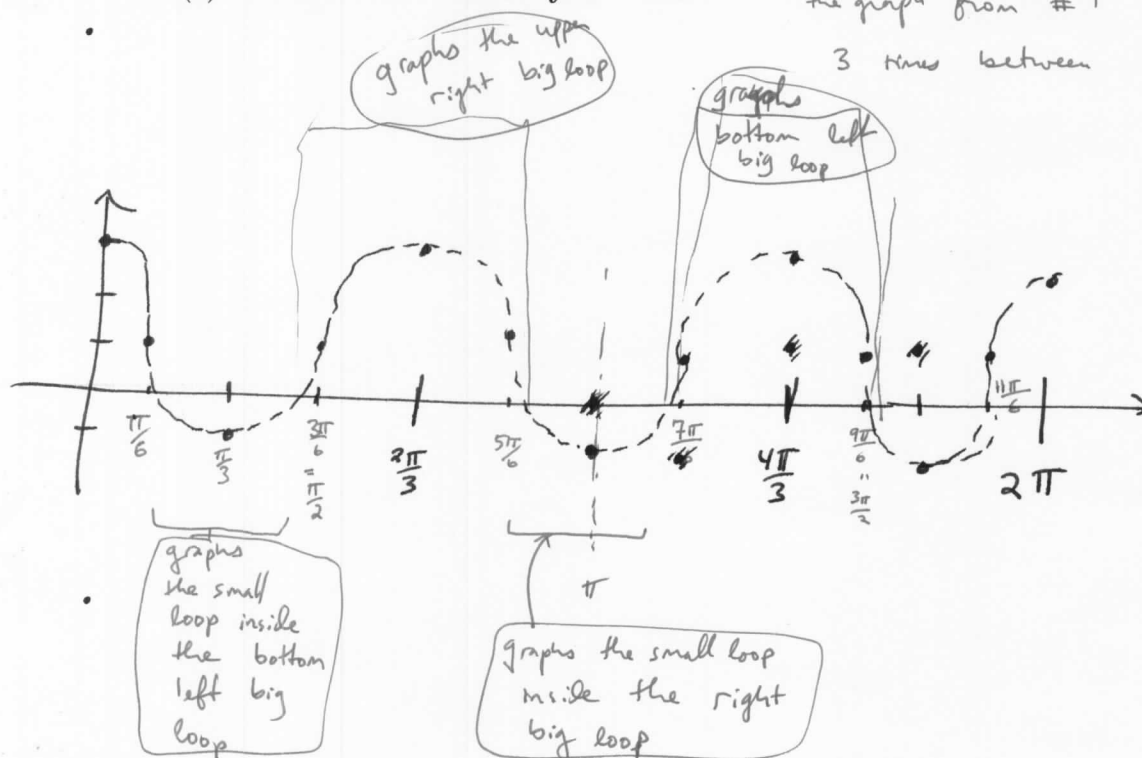 the graph from #1
3 times between
graphs the upper
right big loop
graphs
bottom left
big loop
π/6
π/3
3π/6 = π/2
2π/3
5π/6
7π/6
4π/3
9π/6 = 3π/2
11π/6
2π
π
graphs
the small
loop inside
the bottom
left big
loop
graphs the small loop
inside the right
big loop